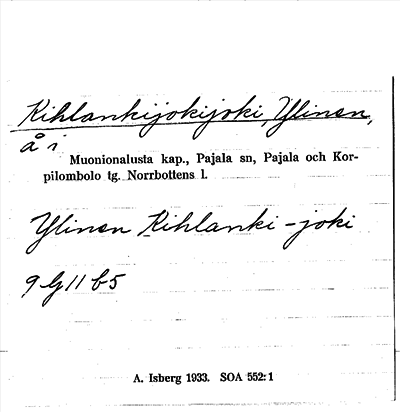 Kihlankijokijoki, Ylinen,
å i
Muonionalusta kap., Pajala sn, Pajala och Kor-
pilombolo tg. Norrbottens l.
Ylinen Kihlanki-joki
9 G 11 b 5
A. Isberg 1933. SOA 552:1